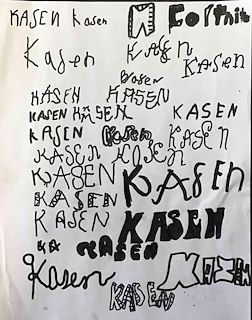 KASEN Kasen
Kasen KASEN KASEN
Kasen
KASEN KASEN
KASEN KASEN KASEN
KASEN Kasen KASEN
KASEN KASEN
KASEN KASEN
KASEN
KASEN KASEN
KA KASEN
Kasen KASEN
KASEN